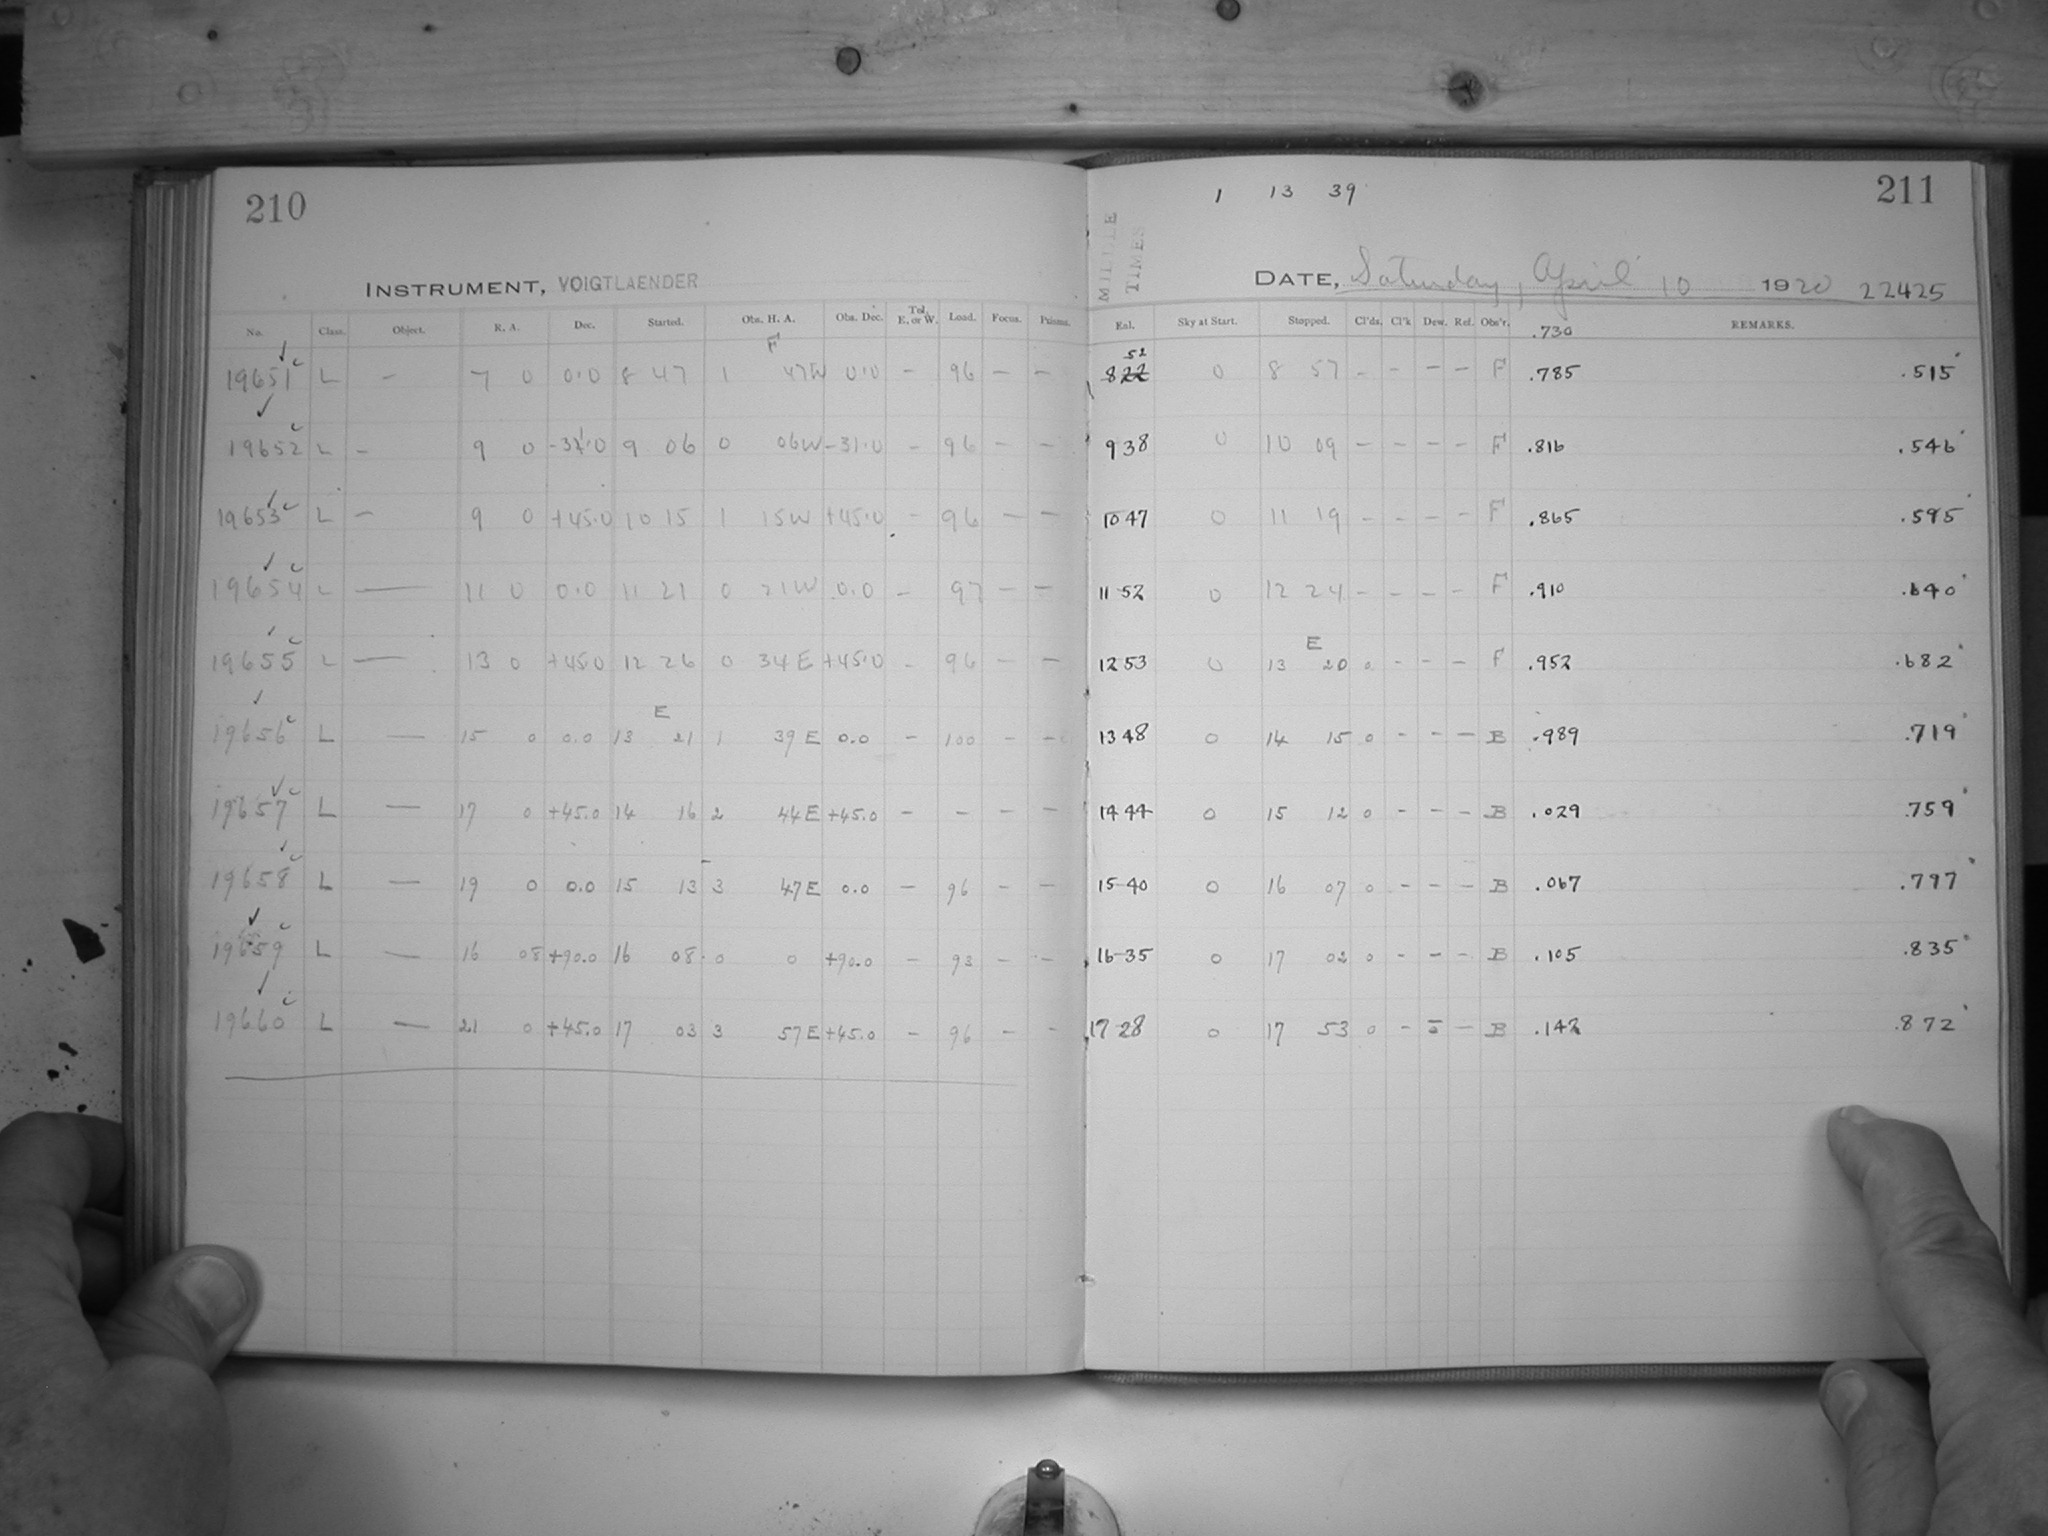 210
INSTRUMENT, VOIGTLAENDER
No. Class. Object. R. A. Dec. Started. Obs. H. A. Obs. Dec. Tel. E. or W. Load. Focus. Prisms.
F
19651 c L - 7 0 0.0 8 47 1 47W 0.0 - 96 - -
19652 c L - 9 0 -31.0 9 06 0 06W -31.0 - 96 - -
19653 c L - 9 0 +45.0 10 15 1 15W +45.0 - 96 - -
19654 c L - 11 0 0.0 11 21 0 21W 0.0 - 97 - -
19655 c L - 13 0 +45.0 12 26 0 34E +45.0 - 96 - -
E
19656 c L - 15 0 0.0 13 21 1 39E 0.0 - 100 - -
19657 c L - 17 0 +45.0 14 16 2 44E +45.0 - - - -
19658 c L - 19 0 0.0 15 13 3 47E 0.0 - 96 - -
19659 c L - 16 08 +90.0 16 08 0 0 +90.0 - 93 - -
19660 c L - 21 0 +45.0 17 03 3 57E +45.0 - 96 - -
1 13 39
211
MIDDLE TIMES
DATE, Saturday, April 10 1920 22425
Eal. Sky at Start. Stopped. Cl'ds. Cl'k Dew. Ref. Obs'r. .730 REMARKS.
52
8 22 0 8 57 - - - - F .785 .515
9 38 0 10 09 - - - - F .816 .546
10 47 0 11 19 - - - - F .865 .595
11 52 0 12 24 - - - - F .910 .640
E
12 53 0 13 20 0 - - - F .952 .682
13 48 0 14 15 0 - - - B .989 .719
14 44 0 15 12 0 - - - B .029 .759
15 40 0 16 07 0 - - - B .067 .797
16 35 0 17 02 0 - - - B .105 .835
17 28 0 17 53 0 - - B .142 .872